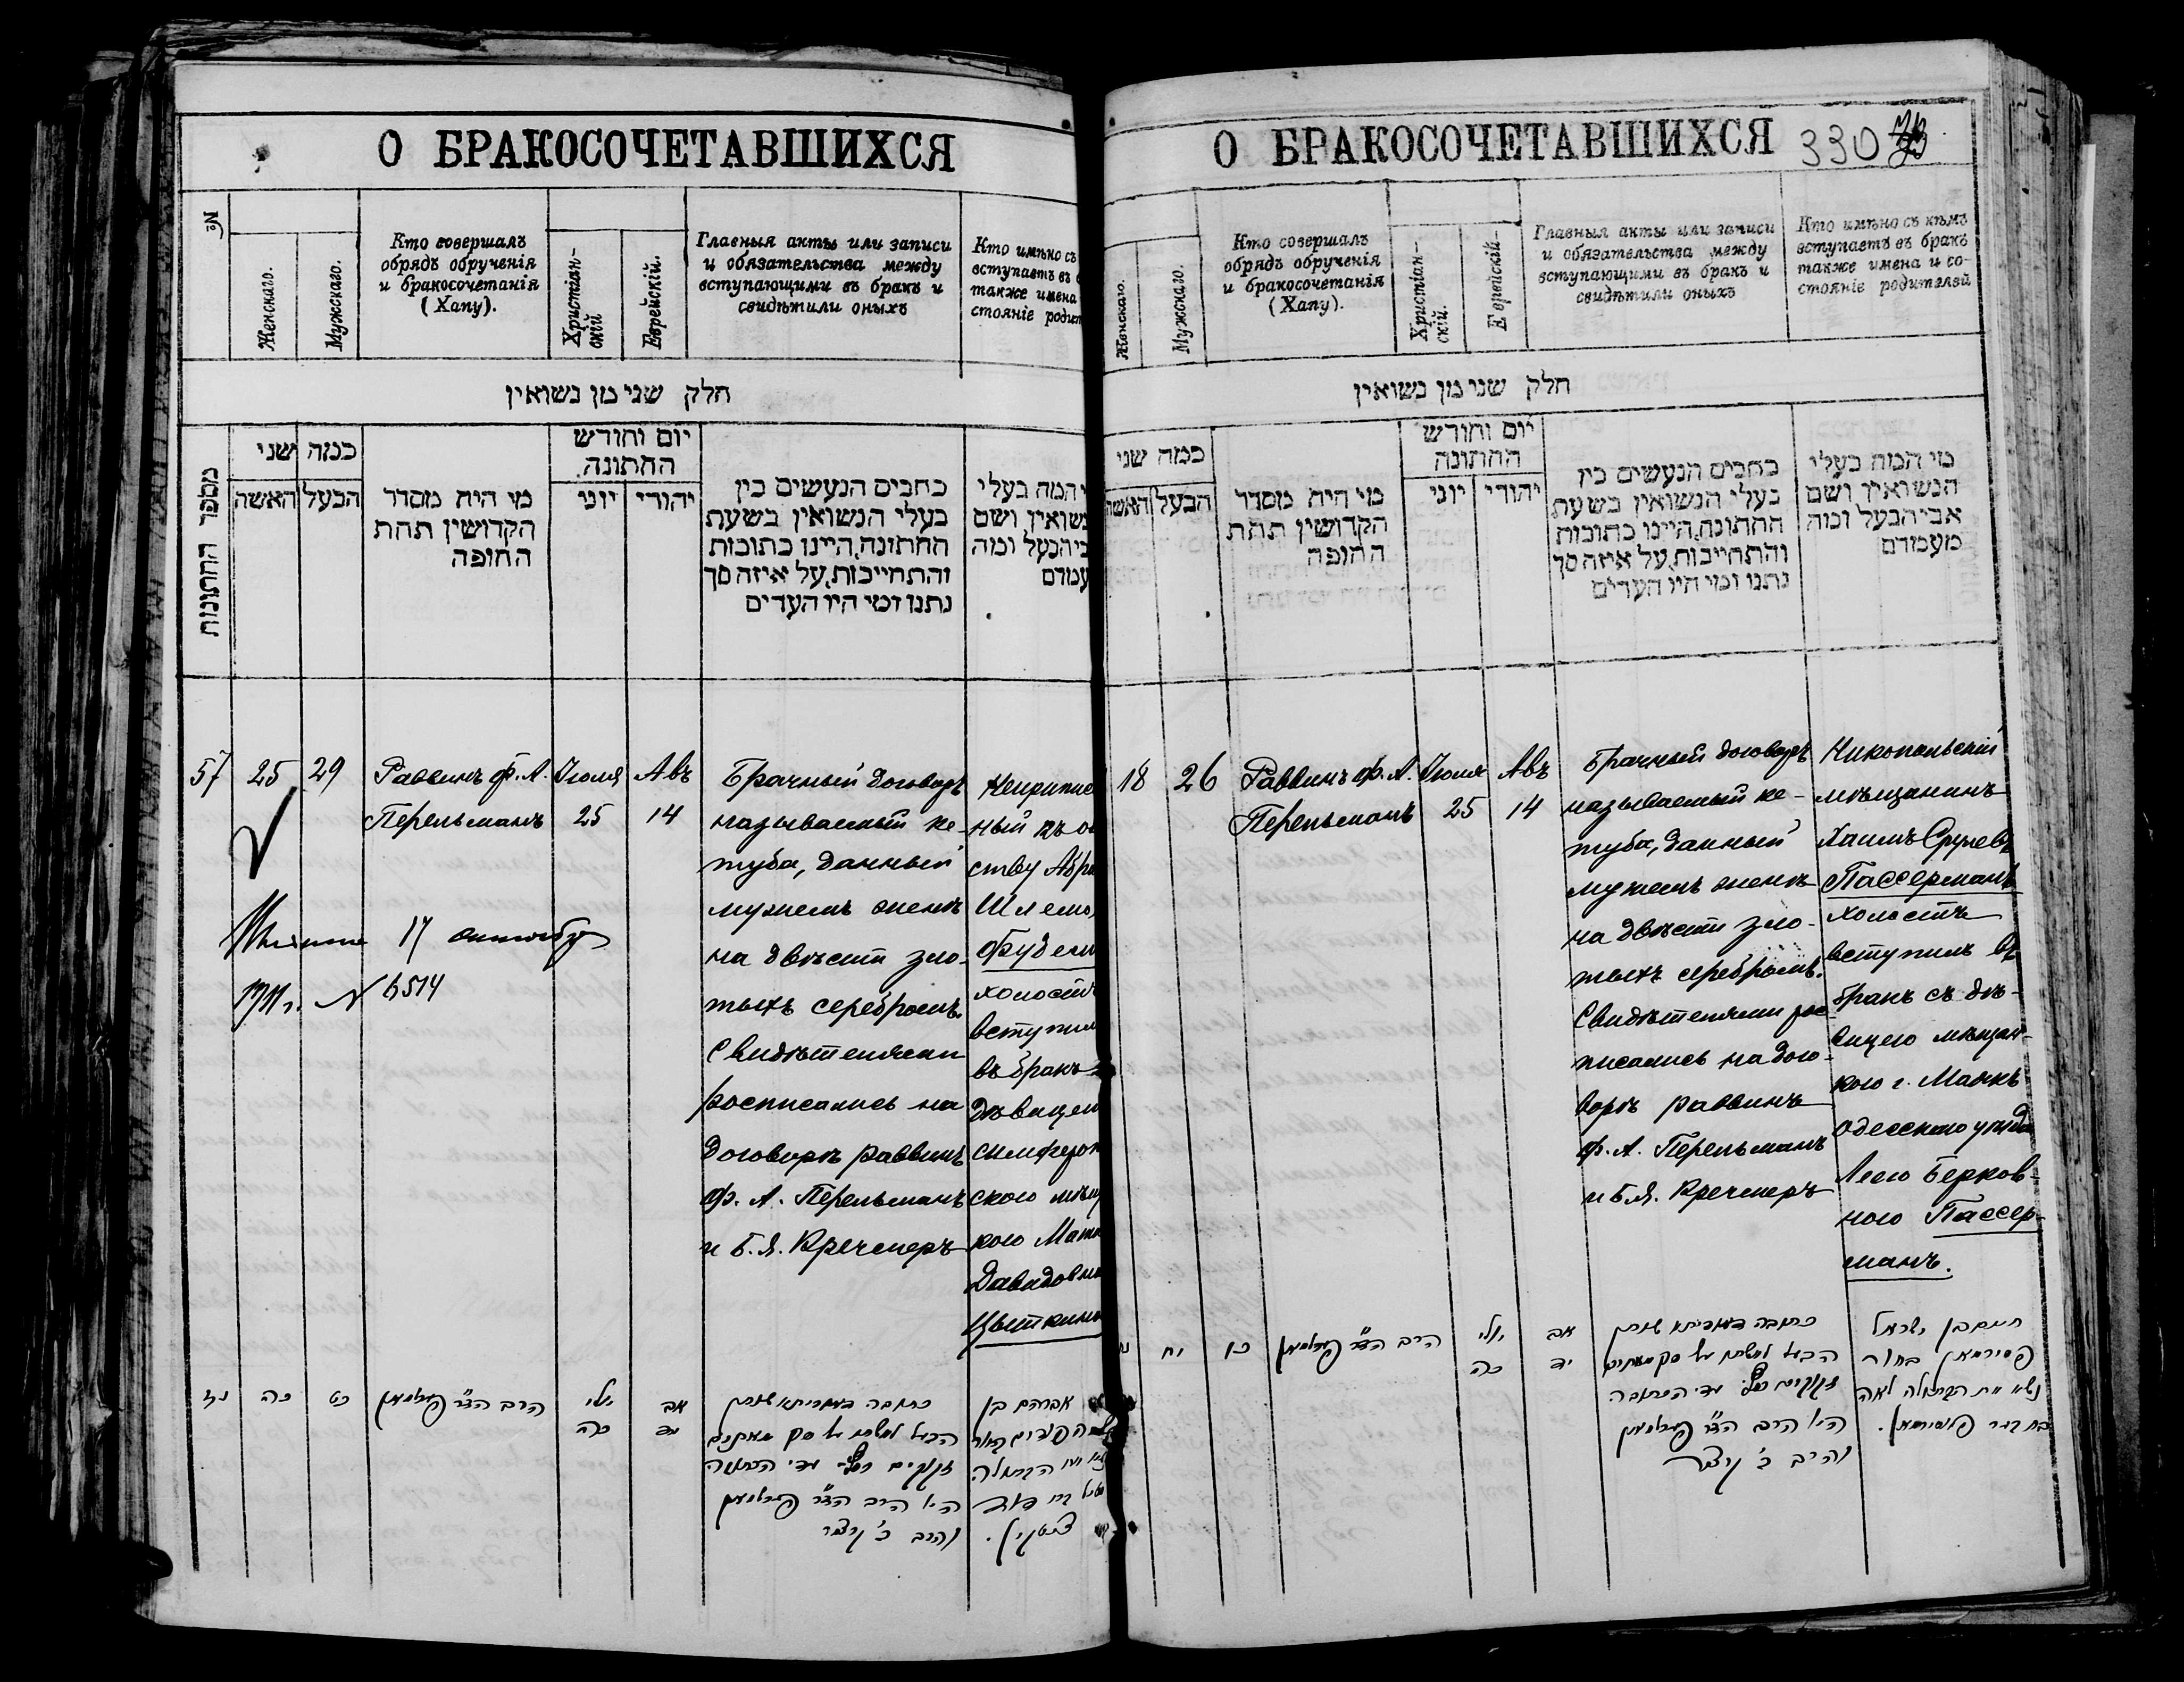 О БРАКОСОЧЕТАВШИХСЯ
№
Женскаго.
Мужскаго.
Кто совершалъ
обрядъ обрученія
и бракосочетанія
(Хапу).
Христіан-
скій
Еврейскій.
Главныя акты или записи
и обязательства между
вступающими въ бракъ и
свидѣтили оныхъ
Кто имѣно съ
вступаетъ въ
также имена
стояніе родит
חלק שני מן נשואין
מספר החתונות
כמה שני
האשה
הבעל
מי היה מסדר
הקדושין תחת
החופה
יום וחודש
החתונה.
יוני
יהודי
כתבים הנעשים בין
בעלי הנשואין בשעת
החתונה, היינו כתובות
והתחייבות, על איזה סך
נתנו ומי היו העדים
המה בעלי
נשואין ושם
ביהבעל ומה
עמדם
57
25
29
Раввинъ Ф. А.
Перельманъ
Іюля
25
Авъ
14
Брачный договоръ
называемый ке-
туба, данный
мужемъ женѣ
на двѣсти зло-
тыхъ серебромъ.
Свидѣтелями
росписались на
договорѣ раввинъ
Ф. А. Перельманъ
и Б. Я. Кречмеръ
Неприпис
ный къ о
ству Абра
Шлемо
Фудем
холостъ
вступил
въ бракъ
дѣвицею
симфероп
скаго мѣщ
кого
Давидовн
Цыткин
17 октября
1911 г. № 6514
נז
כה
כט
הרב הד״ר פערלמאן
יולי
כה
אב
יד
הבעל לאשתו על סך מאתים
זקוקים כסף. עדי הכתובה
היו הרב הד״ר פערלמאן
אברהם בן
О БРАКОСОЧЕТАВШИХСЯ
330
Женскаго.
Мужскаго.
Кто совершалъ
обрядъ обрученія
и бракосочетанія
(Хапу).
Христіан-
скій.
Еврейскій.
Главныя акты или записи
и обязательства между
вступающими въ бракъ и
свидѣтили оныхъ
Кто имѣно съ кѣмъ
вступаетъ въ бракъ
также имена и со-
стояніе родителей
חלק שני מן נשואין
כמה שני
האשה
הבעל
מי היה מסדר
הקדושין תחת
החופה
יום וחודש
החתונה
יוני
יהודי
כתבים הנעשים בין
בעלי הנשואין בשעת
החתונה, היינו כתובות
והתחייבות, על איזה סך
נתנו ומי היו העדים
מי המה בעלי
הנשואין ושם
אביהבעל ומה
מעמדם
18
26
Раввинъ Ф. А.
Перельманъ
Іюля
25
Авъ
14
Брачный договоръ
называемый ке-
туба, данный
мужемъ женѣ
на двѣсти зло-
тыхъ серебромъ.
Свидѣтелями рос-
писались на дого-
ворѣ раввинъ
Ф. А. Перельманъ
и Б. Я. Кречмеръ
Никопольскій
мѣщанинъ
Хаимъ Срулевъ
Пассерманъ
холостъ
вступилъ въ
бракъ съ дѣ-
вицею мѣщан-
кою г. Маякъ
Одесскаго уѣзда
Леею Берков-
ною Пассер-
манъ.
יח
כו
הרב הד״ר פערלמאן
יולי
כה
אב
יד
הבעל לאשתו על סך מאתים
זקוקים כסף. עדי הכתובה
היו הרב הד״ר פערלמאן
חיים בן ישראל
פסירמאן בחור
נשוי עם הבתולה לאה